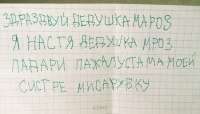 ЗДРАЗДВУЙ ДЕДУШКА МАРОЗ
Я НАСТЯ ДЕДУШКА МРОЗ
ПАДАРИ ПАЖАЛУСТА МА МОЕЙ
СИСТРЕ МИСАРУБКУ